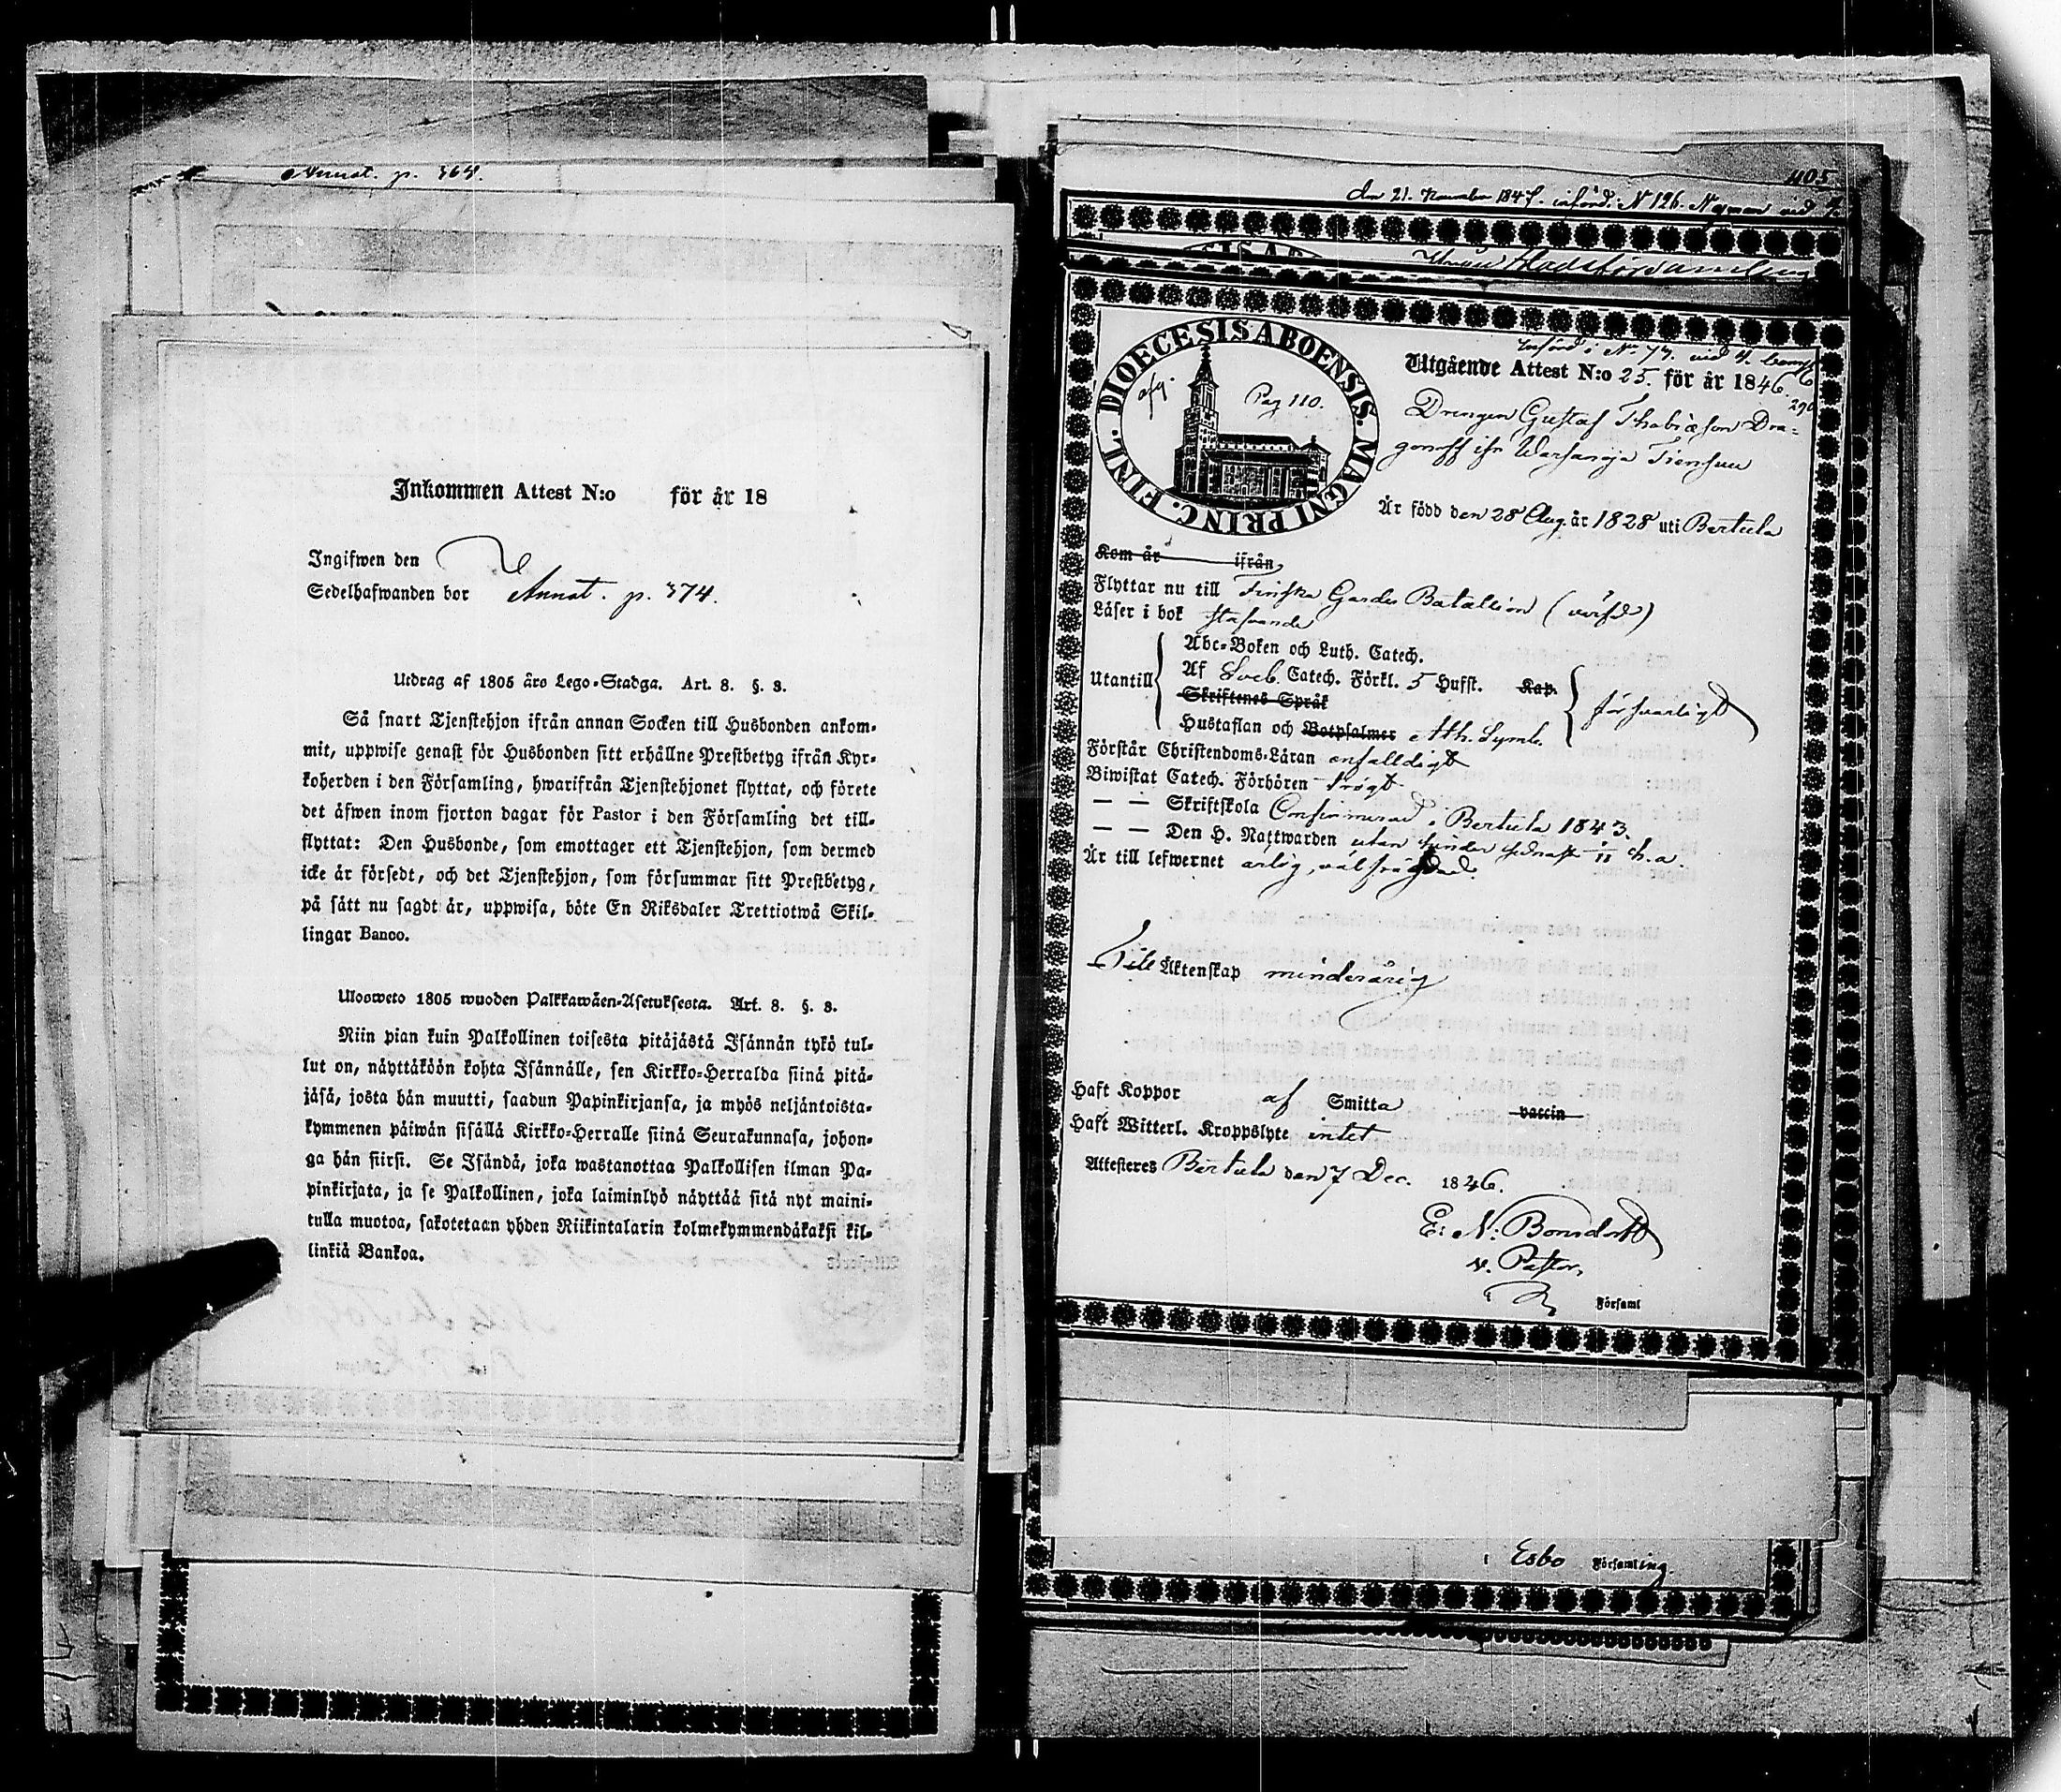 Annot. p. 364.
Inkommen Attest N:o för år 18
Ingifwen den
Sedelhafwanden bor Annot. p. 374.
Utdrag af 1805 års Lego-Stadga. Art. 8. §. 3.
Så snart Tjenstehjon ifrån annan Socken till Husbonden ankom-
mit, uppwise genast för Husbonden sitt erhållne Prestbetyg ifrån Kyr-
koherden i den Församling, hwarifrån Tjenstehjonet flyttat, och förete
det äfwen inom fjorton dagar för Pastor i den Församling det till-
flyttat: Den Husbonde, som emottager ett Tjenstehjon, som dermed
icke är försedt, och det Tjenstehjon, som försummar sitt Prestbetyg,
på sätt nu sagdt är, uppwisa, böte En Riksdaler Trettiotwå Skil-
lingar Banco.
Ulosweto 1805 wuoden Palkkawäen-Asetuksesta. Art. 8. §. 3.
Niin pian kuin Palkollinen toisesta pitäjästä Isännän tykö tul-
lut on, näyttäköön kohta Isännälle, sen Kirkko-Herralda siinä pitä-
jäsä, josta hän muutti, saadun Papinkirjansa, ja myös neljäntoista-
kymmenen päiwän sisällä Kirkko-Herralle siinä Seurakunnasa, johon-
ga hän siirsi. Se Isändä, joka wastanottaa Palkollisen ilman Pa-
pinkirjata, ja se Palkollinen, joka laiminlyö näyttää sitä nyt maini-
tulla muotoa, sakotetaan yhden Riikintalarin kolmekymmendäkaksi kil-
linkiä Bankoa.
405
den 21. November 1847. införd: N 126. Nyman vid
Stadsförsamling
DIOECESIS ABOENSIS. MAGNI PRINC. FINL.
afg.
Pag 110.
Införd i N:o 77. vid 4. Comp
Utgående Attest N:o 25. för år 1846.
290
Drengen Gustaf Thabiæson Dra-
gonoff ifr Warsanoja Tiensuu
Är född den 28 Aug. år 1828 uti Bertula
Kom år ifrån
Flyttar nu till Finska Gardes Bataillion (värfd)
Läser i bok stafvande
Utantill
Abc-Boken och Luth. Catech.
Af Sveb. Catech. Förkl. 5 Hufst. Kap.
Skriftenes Språk
försvarligt
Hustaflan och Botpsalmer Ath. Symb.
Förstår Christendoms-Läran enfalldigt
Biwistat Catech. Förhören trögt
— — Skriftskola Confirmerad i Bertula 1843.
— — Den H. Nattwarden utan hinder sednast 1/11 h.a.
Är till lefwernet ärlig, välfrägdad.
Till Äktenskap minderårig
Haft Koppor af Smitta vaccin
Haft Witterl. Kroppslyte intet
Attesteres Bertula den 7 Dec. 1846.
E: N: Bonsdorff
v. Pastor,
i Församl
i Esbo Församling.